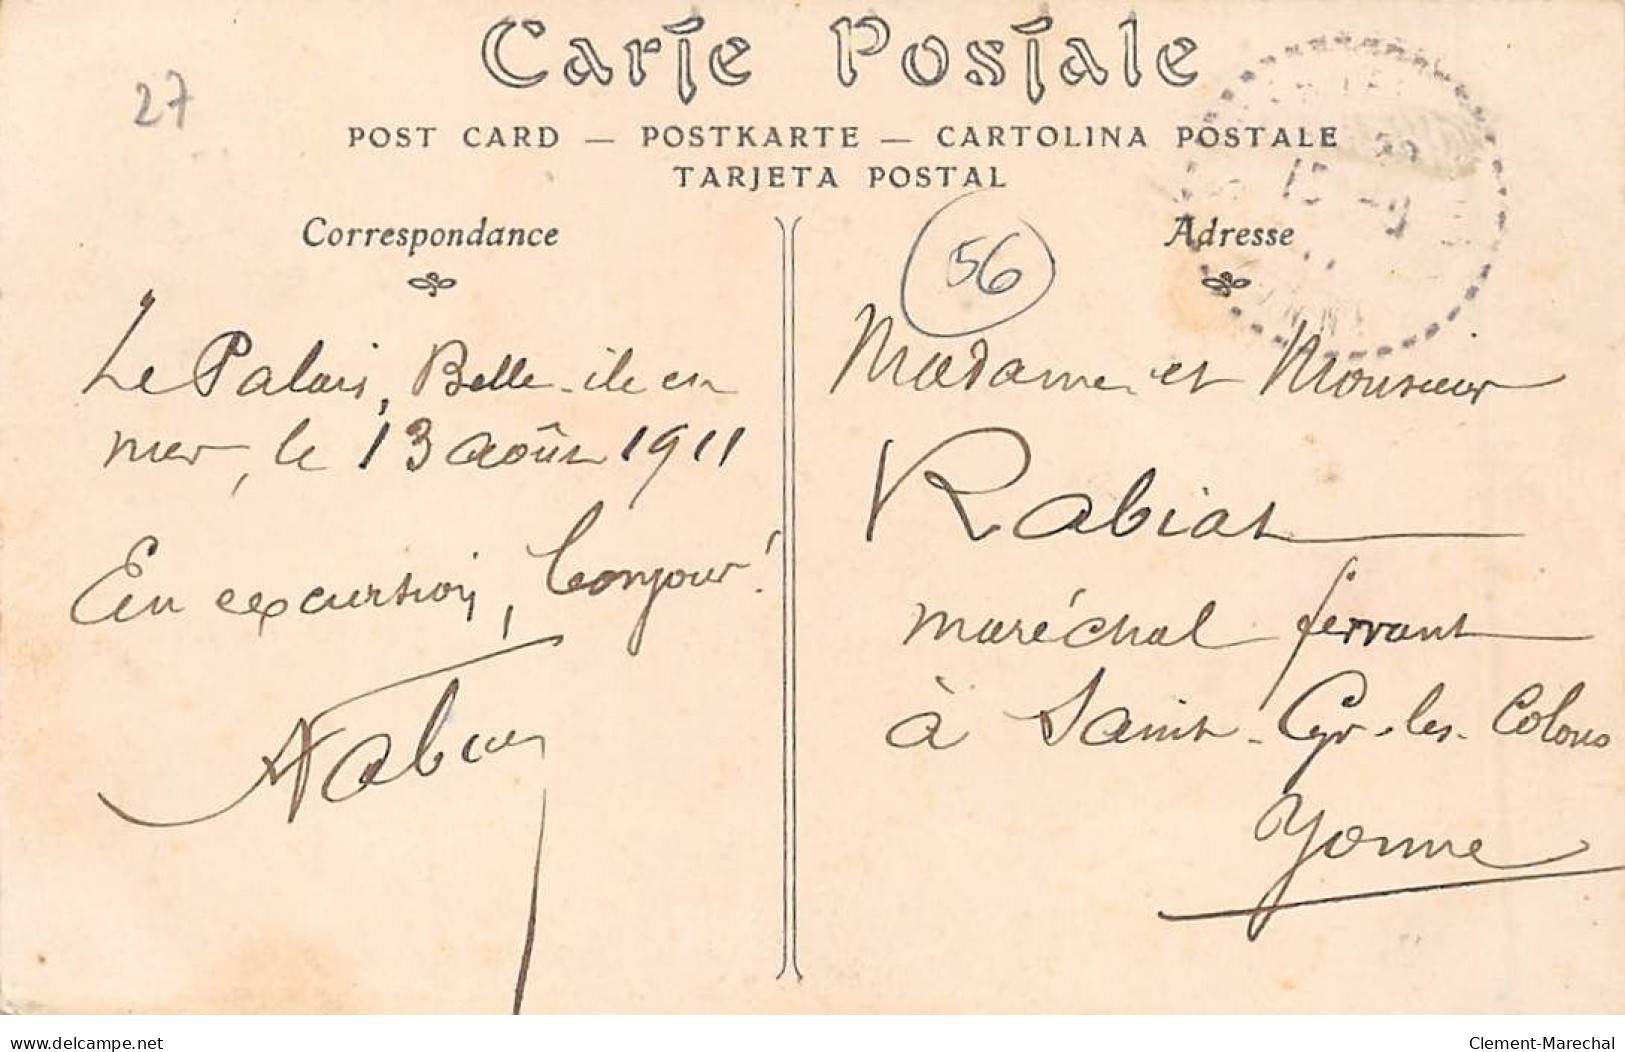 Carte Postale
POST CARD — POSTKARTE — CARTOLINA POSTALE
TARJETA POSTAL
27
Correspondance
Le Palais, Belle-ile en
mer, le 13 août 1911
En excursion, bonjour!
56
Adresse
Madame et Monsieur
Rabiat
maréchal ferrant
à Saint-Cyr-les-Colons
Yonne
delcampe.net
Clement-Marechal